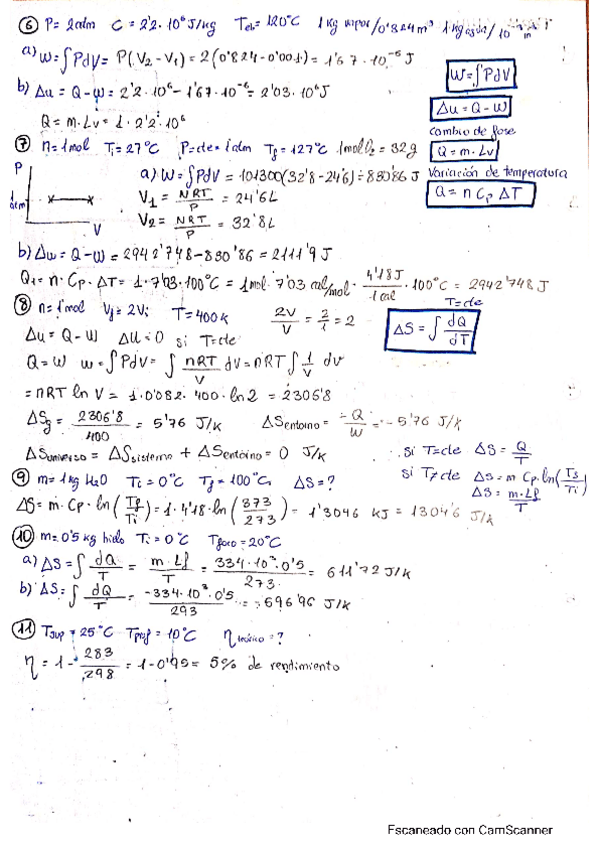 ⑥ P= 2atm C= 2'2·10⁶ J/kg Teb= 120°C 1kg vapor/0'824m³ 1kg agua/10⁻³m³
a) W=∫PdV= P(V₂-V₁) = 2(0'824-0'001)= 1'67·10⁻⁶ J
W=∫PdV
b) Δu= Q-W= 2'2·10⁶-1'67·10⁻⁶= 2'03·10⁶J
Δu=Q-W
Q=m·Lv= 1·2'2·10⁶
Cambio de fase
Q=m·Lv
⑦ n=1mol Ti=27°C P=cte=1atm Tf=127°C 1molO₂=32g
P
1 atm
V
a) W=∫PdV= 101300(32'8-24'6)= 830'86 J
Variación de temperatura
Q= n Cp ΔT
V₁= NRT/P = 24'6L
V₂= NRT/P = 32'8L
b) Δu= Q-W= 2942'748-830'86= 2111'9 J
Q₁= n·Cp·ΔT= 1·7'03·100°C= 1mol·7'03 cal/mol · 4'18J/1cal ·100°C = 2942'748J
⑧ n=1mol Vf=2Vi T=400k 2V/V = 2/1 = 2
T=cte
ΔS=∫dQ/dT
Δu= Q-W Δu=0 si T=cte
Q=W W=∫PdV= ∫ nRT/V dV= nRT∫ 1/V dv
= nRT ln V= 1·0'082·400·ln2 = 2306'8
ΔSg= 2306'8/400 = 5'76 J/K ΔSentorno= -Q/W = -5'76 J/K
ΔSuniverso= ΔSsistema + ΔSentorno= 0 J/K
si T=cte ΔS= Q/T
si T≠cte ΔS= m Cp·ln(Tf/Ti)
ΔS= m·Lf/T
⑨ m=1kg H₂O Ti=0°C Tf=100°C ΔS=?
ΔS= m·Cp·ln(Tf/Ti)= 1·4'18·ln(373/273)= 1'3046 KJ = 1304'6 J/K
⑩ m=0'5kg hielo Ti=0°C Tfoco=20°C
a) ΔS=∫dQ/T = m·Lf/T = 334·10³·0'5/273 = 611'72 J/K
b) ΔS=∫dQ/T = -334·10³·0'5/293 = -596'96 J/K
⑪ Tsup=25°C Tprof=10°C ηteórico=?
η= 1- 283/298 = 1-0'95= 5% de rendimiento
Escaneado con CamScanner